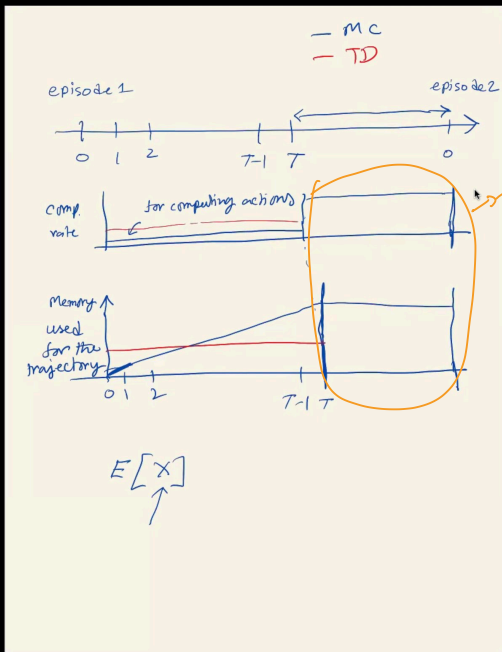 — MC
— TD
episode 1
episode 2
0 1 2 T-1 T 0
comp. rate
for computing actions
Memory
used
for the
trajectory
0 1 2 T-1 T
E[X]